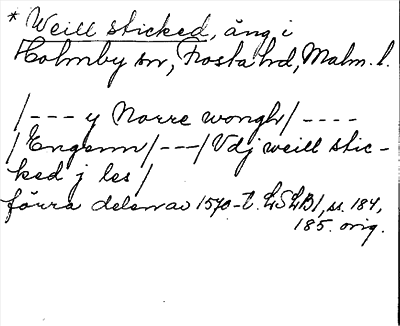 * Weill sticked, äng i
Holmby sn, Frosta hd, Malm. l.
/--- y Norre wongh/----
/Engenn/---/Vdj weill stic-
ked j les/
förra delen av 1570-t. LSLB1, ss. 184,
185. orig.